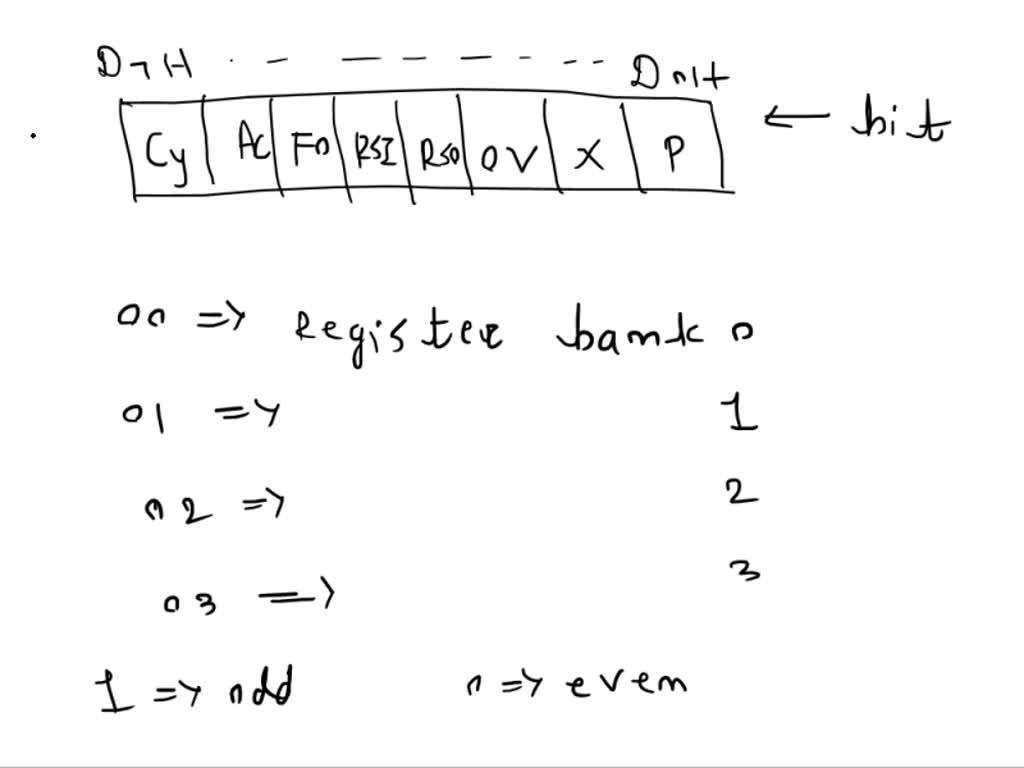 D7H . - — — - - - - D0H
Cy AC F0 RS1 RS0 OV X P ← bit
00 => Register bank 0
01 => 1
02 => 2
03 => 3
1 => odd 0 => even